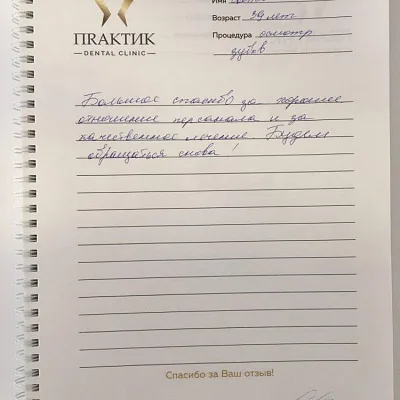 Имя
ПRАКТИК
DENTAL CLINIC
Возраст 39 лет
Процедура осмотр
зубов
Большое спасибо за хорошее
отношение персонала и за
качественное лечение. Будем
обращаться снова!
Спасибо за Ваш отзыв!